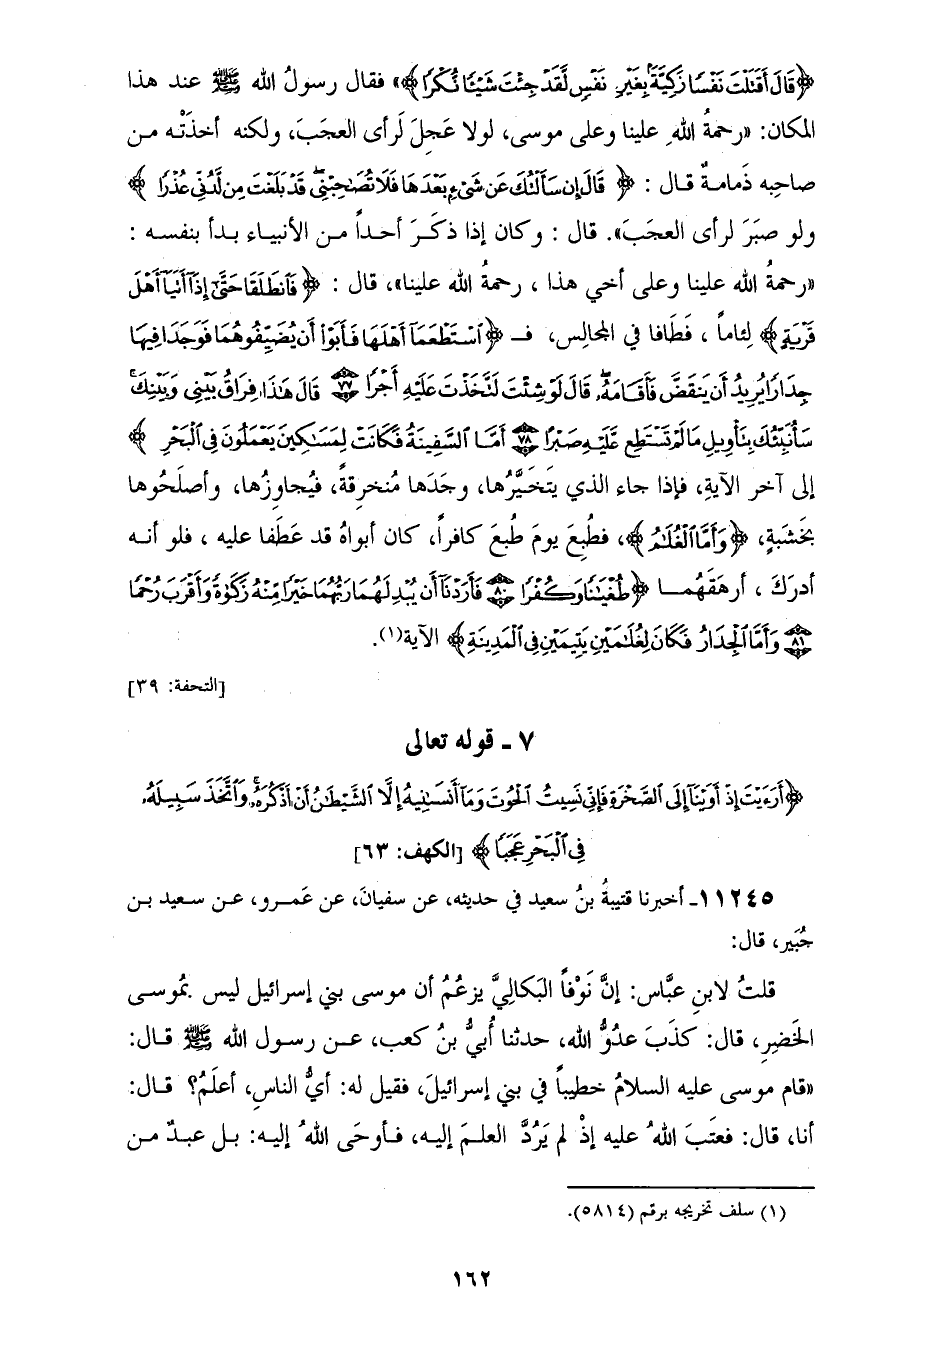 ﴿قَالَ أَقَتَلْتَ نَفْسًا زَكِيَّةً بِغَيْرِ نَفْسٍ لَّقَدْ جِئْتَ شَيْئًا نُّكْرًا﴾» فقال رسولُ الله ﷺ عند هذا
المكان: «رحمةُ اللهِ علينا وعلى موسى، لولا عَجِلَ لَرأى العجَبَ، ولكنه أخذَتْه من
صاحِبه ذَمامةٌ قال : ﴿ قَالَ إِن سَأَلْتُكَ عَن شَىْءٍ بَعْدَهَا فَلَا تُصَٰحِبْنِى قَدْ بَلَغْتَ مِن لَّدُنِّى عُذْرًا ﴾
ولو صبَرَ لرأى العجَبَ». قال : وكان إذا ذكَرَ أحداً من الأنبياء بدأ بنفسه :
«رحمةُ الله علينا وعلى أخي هذا ، رحمةُ الله علينا»، قال : ﴿فَٱنطَلَقَا حَتَّىٰٓ إِذَآ أَتَيَآ أَهْلَ
قَرْيَةٍ﴾ لِئاماً ، فَطَافا في المجالِس، فـ ﴿ٱسْتَطْعَمَآ أَهْلَهَا فَأَبَوْا۟ أَن يُضَيِّفُوهُمَا فَوَجَدَا فِيهَا
جِدَارًا يُرِيدُ أَن يَنقَضَّ فَأَقَامَهُۥ قَالَ لَوْ شِئْتَ لَتَّخَذْتَ عَلَيْهِ أَجْرًا ٧٧ قَالَ هَٰذَا فِرَاقُ بَيْنِى وَبَيْنِكَ
سَأُنَبِّئُكَ بِتَأْوِيلِ مَا لَمْ تَسْتَطِع عَّلَيْهِ صَبْرًا ٧٨ أَمَّا ٱلسَّفِينَةُ فَكَانَتْ لِمَسَٰكِينَ يَعْمَلُونَ فِى ٱلْبَحْرِ ﴾
إلى آخر الآيةِ، فإذا جاء الذي يتَخيَّرُها، وجَدَها مُنخرِقةً، فيُجاوِزُها، وأصلَحُوها
بخَشبَةٍ، ﴿وَأَمَّا ٱلْغُلَٰمُ﴾، فطُبِعَ يومَ طُبعَ كافراً، كان أبواهُ قد عَطَفا عليه ، فلو أنه
أدرَكَ ، أرهَقَهُمـا ﴿طُغْيَٰنًا وَكُفْرًا ٨٠ فَأَرَدْنَآ أَن يُبْدِلَهُمَا رَبُّهُمَا خَيْرًا مِّنْهُ زَكَوٰةً وَأَقْرَبَ رُحْمًا
٨١ وَأَمَّا ٱلْجِدَارُ فَكَانَ لِغُلَٰمَيْنِ يَتِيمَيْنِ فِى ٱلْمَدِينَةِ﴾ الآية(١).
[التحفة: ٣٩]
٧ ـ قوله تعالى
﴿أَرَءَيْتَ إِذْ أَوَيْنَآ إِلَى ٱلصَّخْرَةِ فَإِنِّى نَسِيتُ ٱلْحُوتَ وَمَآ أَنسَىٰنِيهُ إِلَّا ٱلشَّيْطَٰنُ أَنْ أَذْكُرَهُۥ وَٱتَّخَذَ سَبِيلَهُۥ
فِى ٱلْبَحْرِ عَجَبًا ﴾ [الكهف: ٦٣]
١١٢٤٥ـ أخبرنا قتيبةُ بنُ سعيد في حديثه، عن سفيانَ، عن عَمـرو، عـن سعيد بـن
جُبَير، قال:
قلتُ لابنِ عبَّاس: إنَّ نَوْفاً البَكاليَّ يزعُمُ أن موسى بني إسرائيل ليس بموسى
الخَضِرِ، قال: كذَبَ عدُوُّ الله، حدثنا أُبيُّ بنُ كعب، عـن رسـول الله ﷺ قـال:
«قام موسى عليه السلامُ خطيباً في بني إسرائيلَ، فقيل له: أيُّ الناسِ، أعلَمُ؟ قـال:
أنا، قال: فعتَبَ اللهُ عليه إذْ لم يَرُدَّ العلمَ إليه، فـأوحَى اللهُ إليه: بـل عبدٌ من
(١) سلف تخريجه برقم (٥٨١٤).
١٦٢